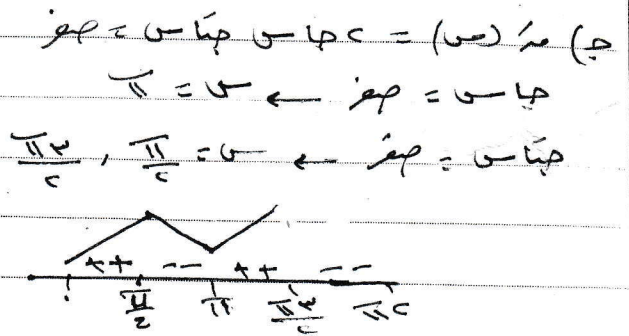 جـ) قَ (س) = ٢ جاس جتاس = صفر
جاس = صفر ← س = π
جتاس = صفر ← س = π/٢ ، ٣π/٢
++ -- ++ --
٠ π/٢ π ٣π/٢ ٢π